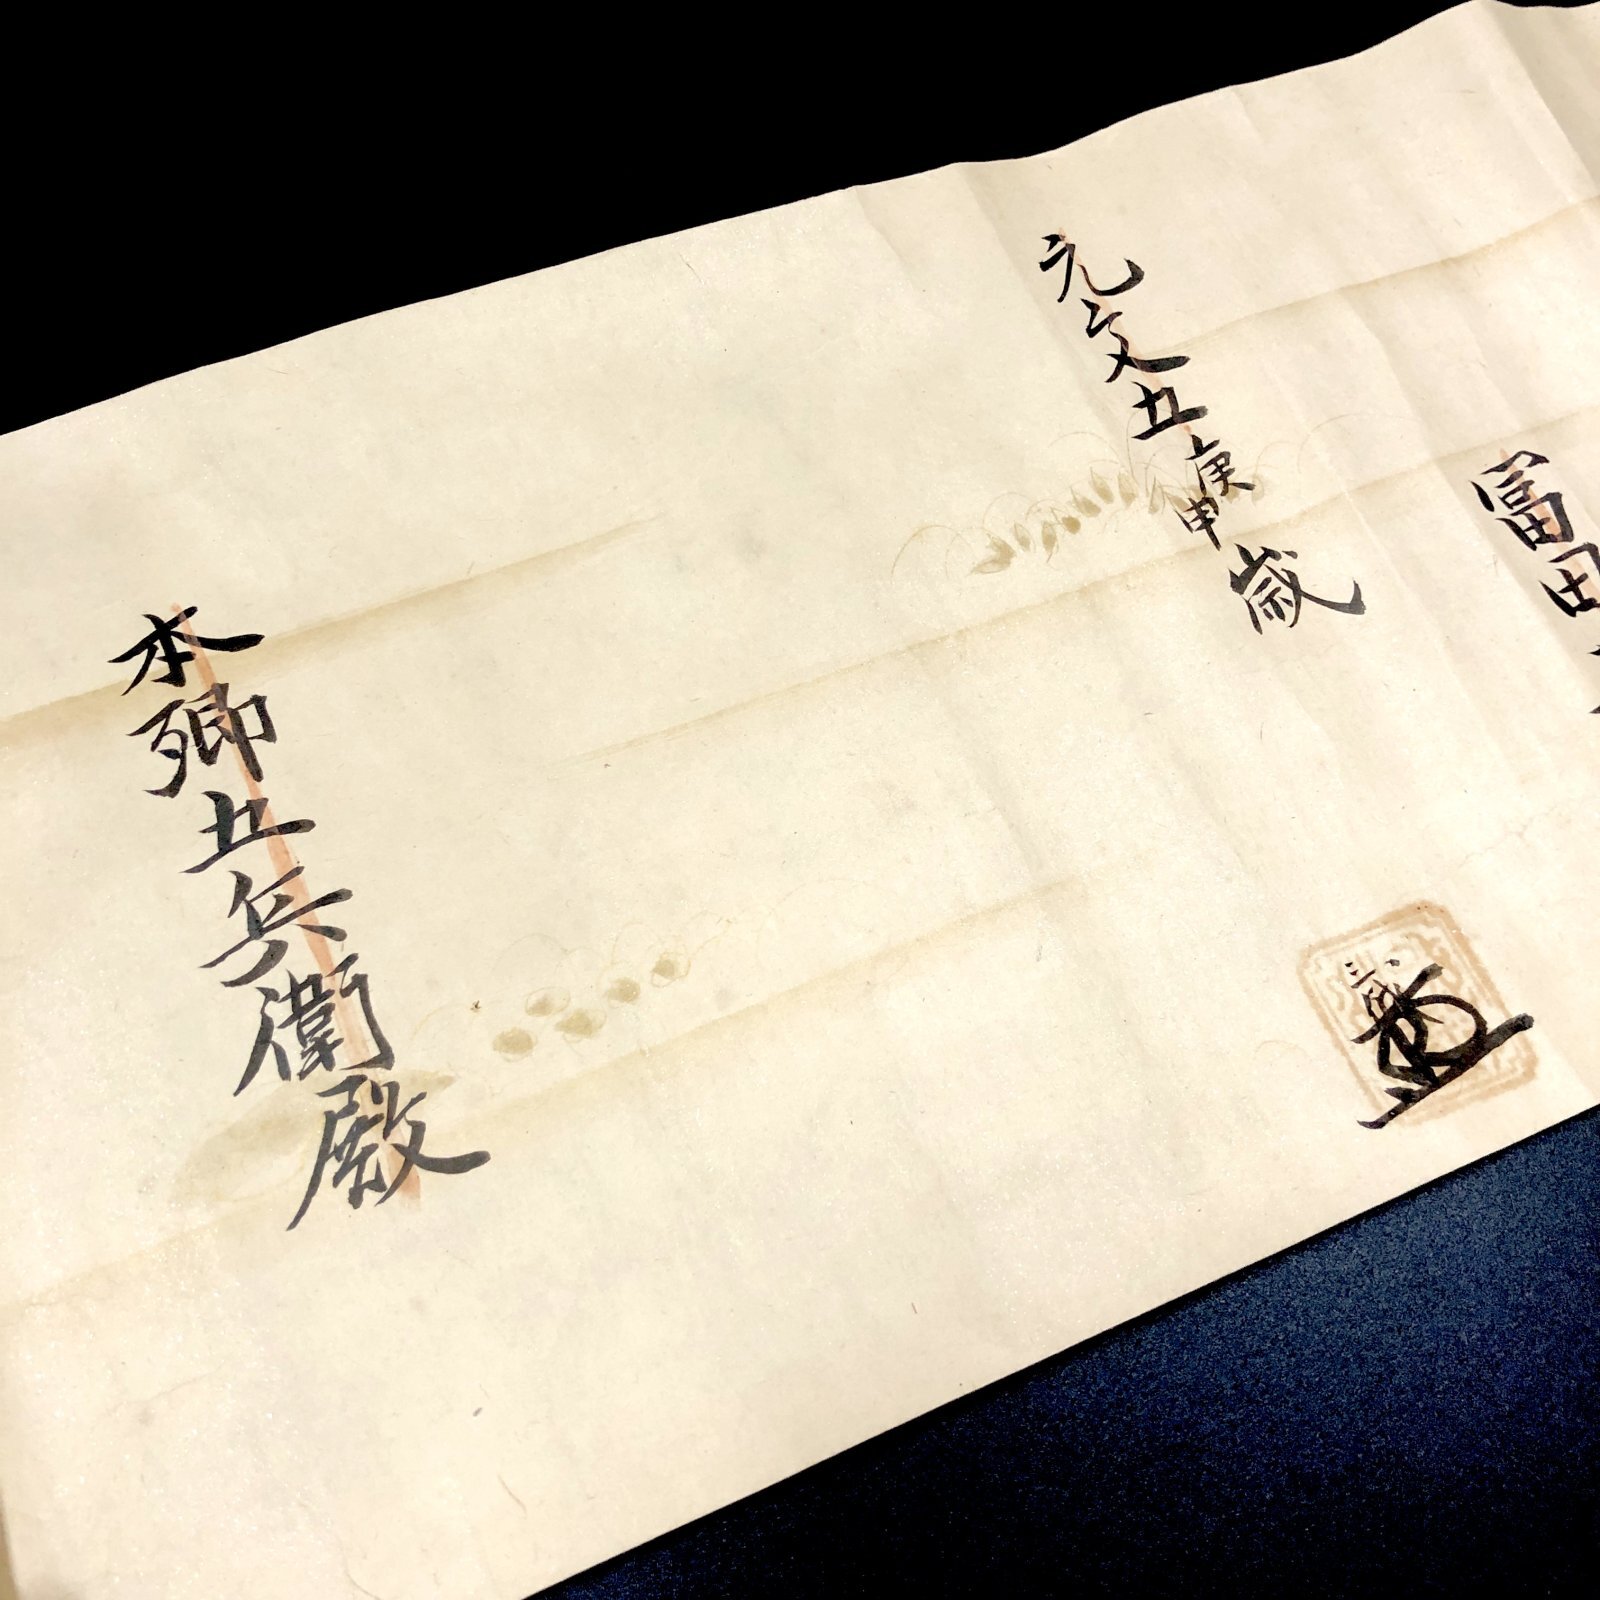 冨田
元文五庚申歳
本郷五兵衛殿